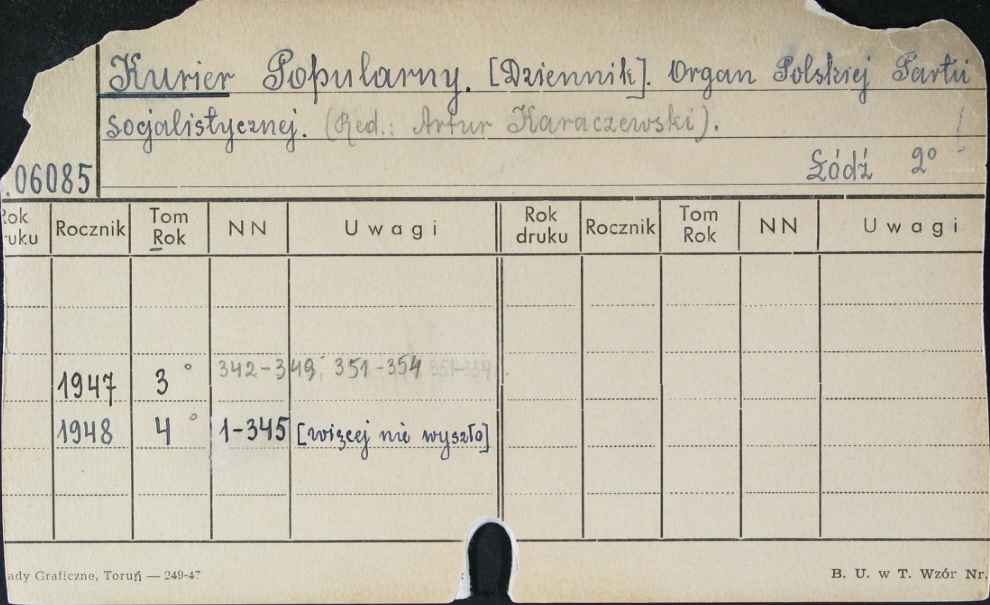 Kurier Popularny. [Dziennik]. Organ Polskiej Partii
socjalistycznej. (Red.: Artur Karaczewski).
Łódź 2°
.06085
Rok druku Rocznik Tom Rok NN Uwagi Rok druku Rocznik Tom Rok NN Uwagi
1947 3° 342-349; 351-354
1948 4° 1-345 [więcej nie wyszło]
ady Graficzne, Toruń — 249-47
B. U. w T. Wzór Nr.